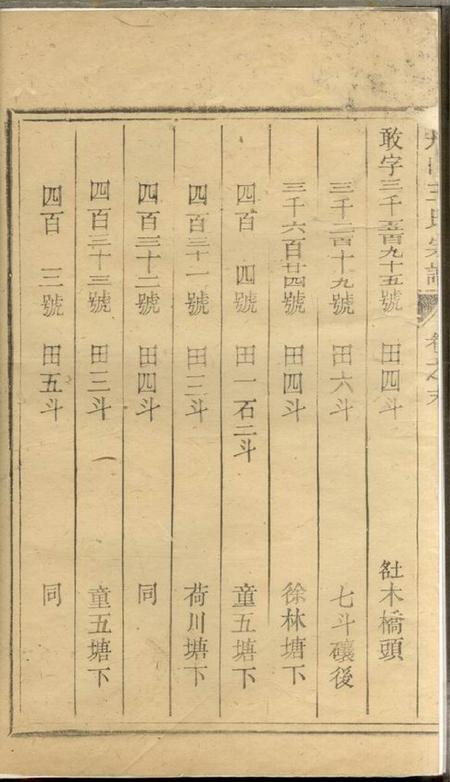 王氏宗譜 卷之末
敢字三千五百九十五號 田四斗 木橋頭
三千二百十九號 田六斗 七斗礳後
三千六百廿四號 田四斗 徐林塘下
四百 四號 田一石二斗 童五塘下
四百三十一號 田三斗 荷川塘下
四百三十二號 田四斗 同
四百三十三號 田三斗 童五塘下
四百 三號 田五斗 同